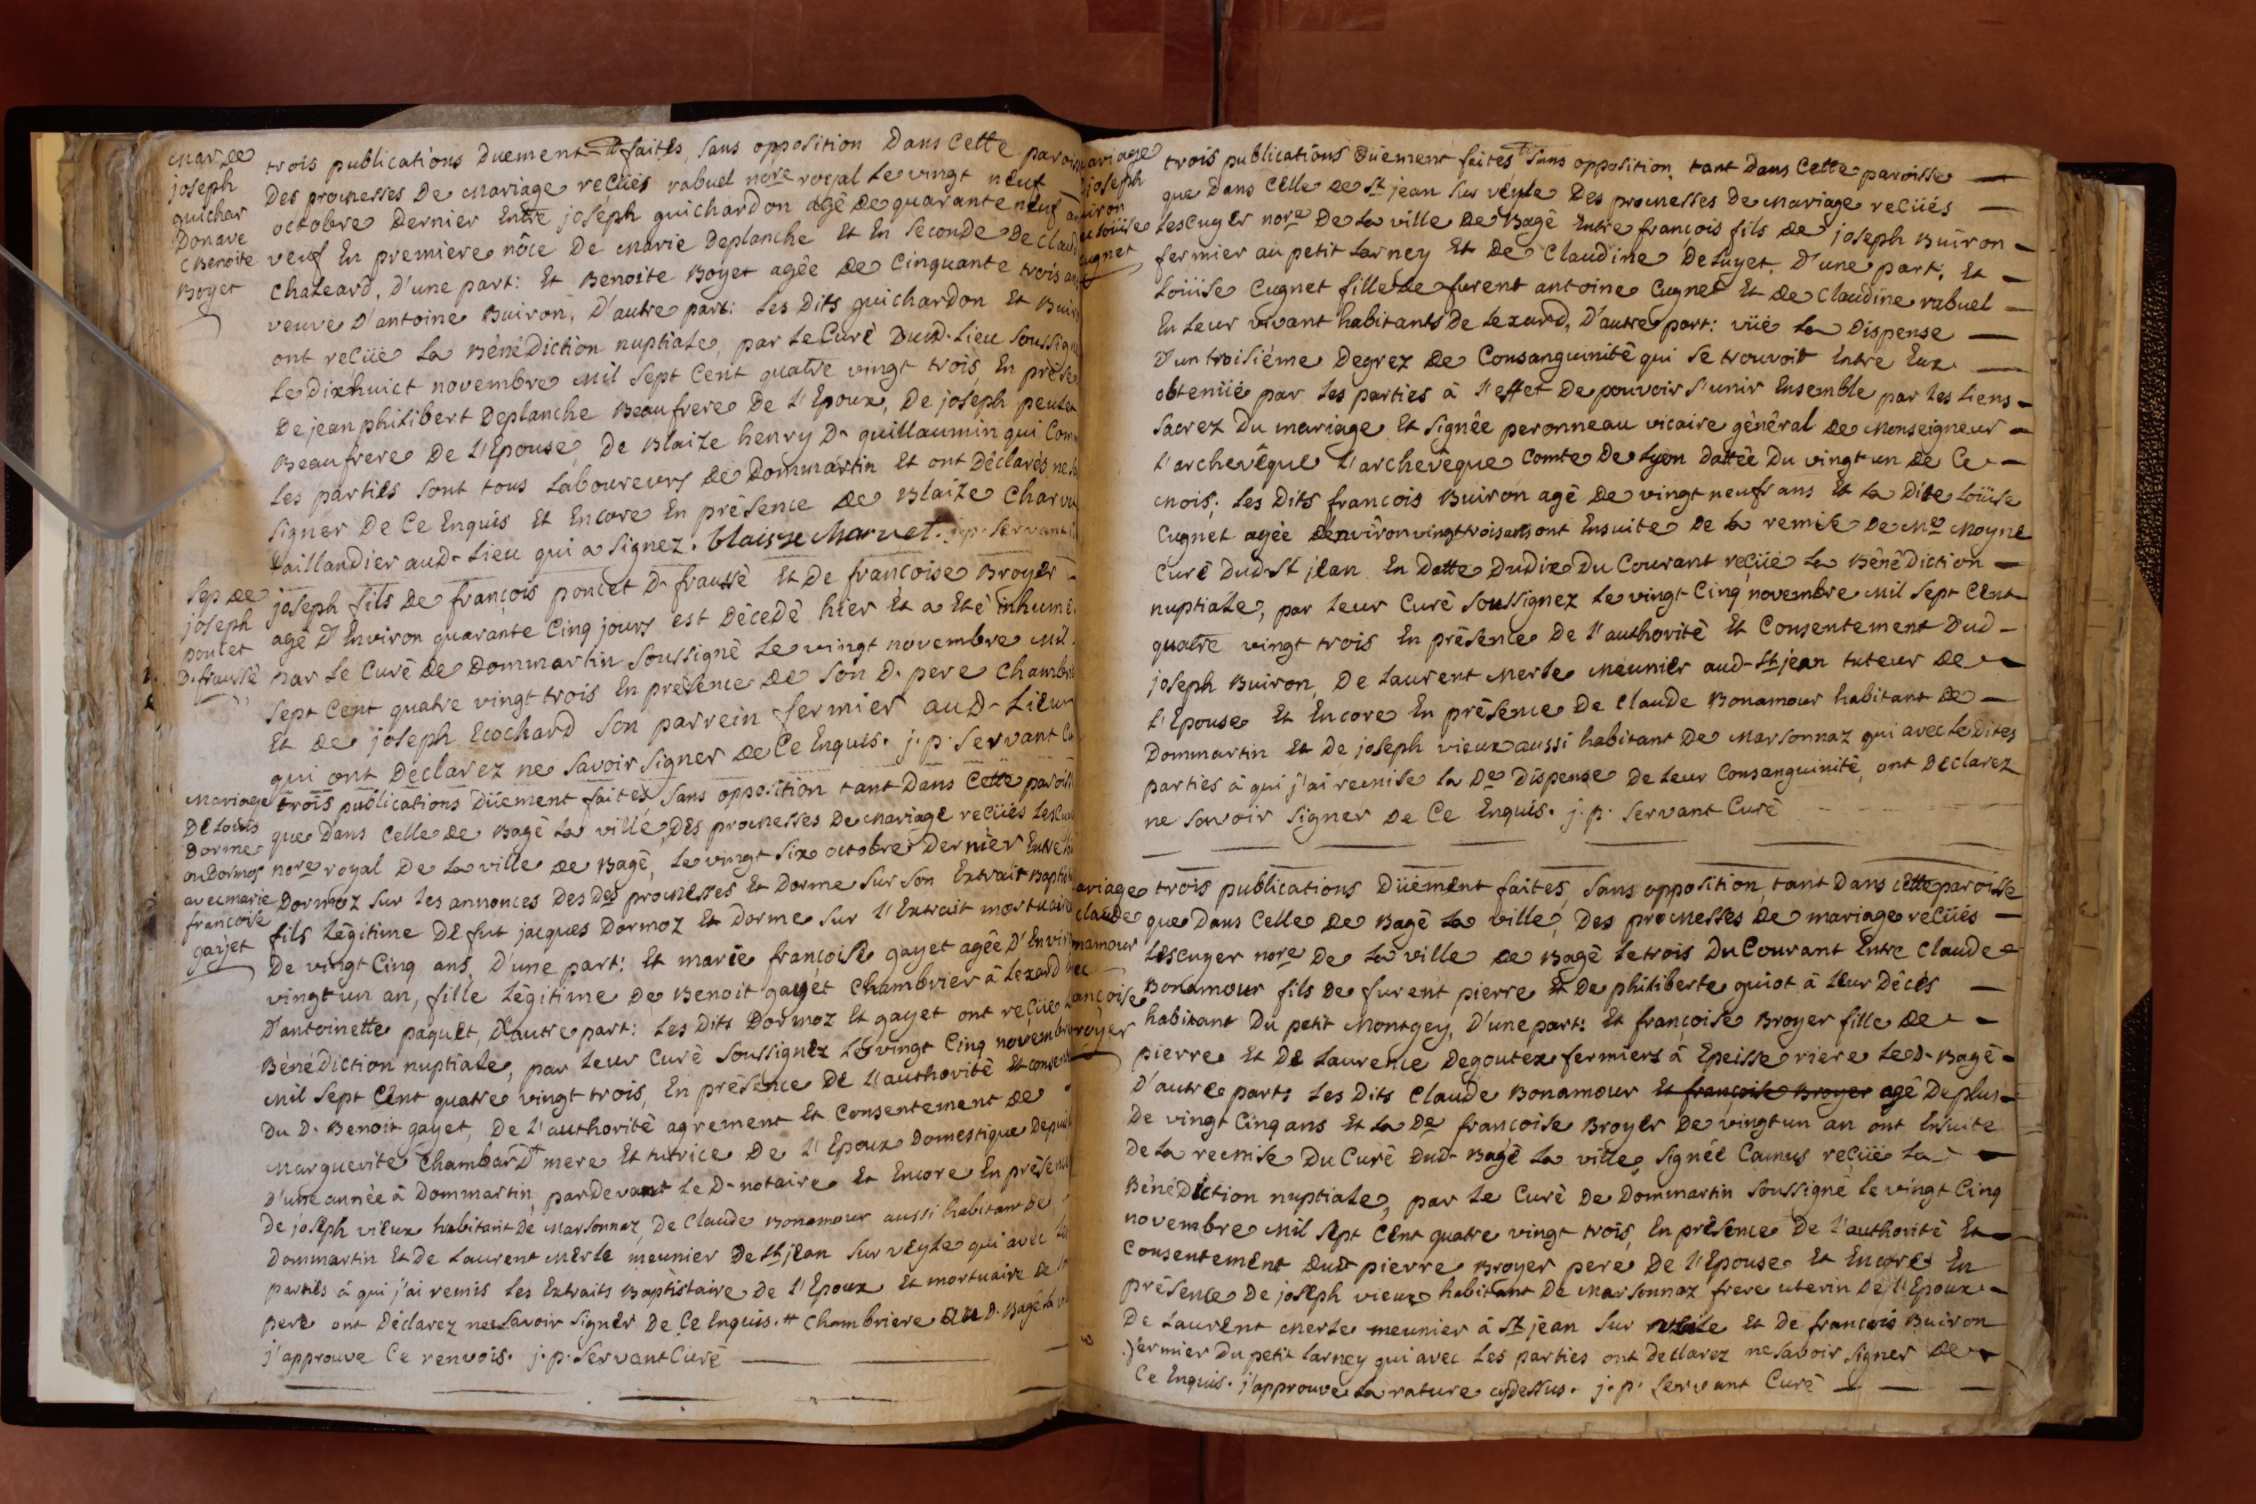 mar de
joseph
guichar
Don ave
c Benoite
Boyer
trois publications duement faites, sans opposition Dans Cette parois
Des promesses De mariage recües rabuel nore royal Le vingt neuf
octobre Dernier Entre joseph guichardon agé De quarante neuf an
veuf En premiere nôce De marie Deplanche Et En seconde De Claud
Chaleard, D'une part: Et Benoite Boyer agée De Cinquante trois ans
veuve D'antoine Buiron, D'autre part: Les Dits guichardon Et Buir
ont recüe La Bénédiction nuptiale, par Le Curé Dud. Lieu soussign
Le Dixhuict novembre mil sept Cent quatre vingt trois, En prése
De jean philibert Deplanche Beaufrere De L'Epoux, De joseph
Beaufrere De L'Epouse De Blaize henry D. guillaumin qui Com
Les parties sont tous Laboureurs De Dommartin Et ont Déclarés ne
signer De Ce Enquis Et Encore En présence De Blaize Charv
taillandier aud. Lieu qui a signez. blaisse Marvet. j. p. servant
Sep de
joseph
poncet
D. fraussé
joseph fils De françois poncet D. fraussé Et De françoise Broyer
agé D'Environ quarante Cinq jours est Décedé hier Et a Eté inhumé
par Le Curé De Dommartin soussigné Le vingt novembre mil
sept Cent quatre vingt trois En présence De son D. pere Chambr
Et De joseph Ecochard son parrein fermier aud. Lieu
qui ont Declarez ne savoir signer De Ce Enquis. j. p. servant Cu
Mariage
De Louis
Dorme
ou Dormoz
avec marie
françoise
gayet
trois publications Düement faites sans opposition tant Dans Cette paroi
que Dans Celle De Bagé La ville, Des promesses De mariage recües Lescu
nore royal De La ville De Bagé, Le vingt six octobre Dernier Entre
Dormoz sur Les annonces Des Des promesses Et Dorme sur son Extrait Bapti
fils Légitime De fut jacques Dormoz Et Dorme sur L'Extrait mortuaire
De vingt Cinq ans, D'une part: Et marie françoise gayet agée D'Envir
vingt un an, fille Légitime De Benoit gayet Chambrier à Lezard
D'antoinette paquet, D'autre part: Les Dits Dormoz Et gayet ont reçüe
Bénédiction nuptiale, par Leur Curé soussignez Le vingt Cinq novembre
mil sept Cent quatre vingt trois, En présence De L'authorité Et conse
Du D. Benoit gayet, De L'authorité agrement Et Consentement De
Marguerite Chambard # mere Et tutrice De L'Epoux Domestique Depui
D'une année à Dommartin, pardevant Le D. notaire Et Encore En prése
De joseph vieux habitant De Marsonnaz, De Claude Bonamour aussi habitant De
Dommartin Et De Laurent Merle meunier De St jean sur veyle qui avec Les
parties à qui j'ai remis Les Extraits Baptistaire De L'Epoux Et mortuaire De
pere ont Déclarez ne savoir signer De Ce Enquis. # Chambriere au D. Bagé La
j'approuve Ce renvois. j. p. servant Curé
ariage
joseph
uiron
Loüise
Cugnet
trois publications Düement faites sans opposition tant Dans Cette paroisse
que Dans Celle De St jean sur veyle Des promesses De mariage recüés
Lescuyer nore De La ville De Bagé Entre françois fils De joseph Buiron
fermier au petit Larney Et De Claudine Deluyet, D'une part, Et
Loüise Cugnet fille De furent antoine Cugnet Et De Claudine rabuel
En Leur vivant habitants De Lezard, D'autre part: vüe La Dispense
D'un troisiéme Degrez De Consanguinité qui se trouvoit Entre Eux
obtenüé par Les parties à l'effet De pouvoir s'unir Ensemble par Les Liens
sacrez Du mariage Et signée peronneau vicaire général De Monseigneur
L'archevêque L'archevêque Comte De Lyon Dattée Du vingt un De Ce
mois; Les Dits francois Buiron agé De vingt neuf ans Et La Dite Loüise
Cugnet agée Denviron vingt trois ans ont Ensuite De La remise De Mre Moyne
Curé Dud. St jean En Datte Du Dix Du Courant reçüe La Bénédiction
nuptiale, par Leur Curé soussignez Le vingt Cinq novembre mil sept Cent
quatre vingt trois En présence De L'authorité Et Consentement Dud
joseph Buiron, De Laurent Merle Meunier aud. St jean tuteur De
L'Epouse Et Encore En présence De Claude Bonamour habitant De
Dommartin Et De joseph vieux aussi habitant De Marsonnaz qui avec Ledites
parties à qui j'ai remise La De Dispense De Leur Consanguinité, ont Declarez
ne savoir signer De Ce Enquis. j. p. servant Curé
ariage
claude
namour
ec
ançoise
royer
trois publications Düement faites, sans opposition, tant Dans Cette paroisse
que Dans Celle De Bagé La ville, Des promesses De mariage recüés
Lescuyer nore De La ville De Bagé Le trois Du Courant Entre Claude
Bonamour fils De furent pierre Et De philiberte guiot à Leur Décès
habitant Du petit Montgey, D'une part: Et francoise Broyer fille De
pierre Et De Laurence Degoutex fermiers à Epeisse riere Le D. Bagé
D'autre part: Les Dits Claude Bonamour Et françoise Broyer agé De plus
De vingt Cinq ans Et La De francoise Broyer De vingt un an ont Ensuite
De La remise Du Curé Dud. Bagé La ville, signée Camus reçüe La
Bénédiction nuptiale, par Le Curé De Dommartin soussigné Le vingt Cinq
novembre mil sept Cent quatre vingt trois, En présence De L'authorité Et
Consentement Dud. pierre Broyer pere De L'Epouse Et Encores En
présence De joseph vieux habitant De Marsonnaz frere uterin De L'Epoux
De Laurent Merle meunier à St jean sur veile Et De francois Buiron
fermier Du petit Larney qui avec Les parties ont Declarez ne savoir signer De
Ce Enquis. j'approuve La rature cydessus. j. p. servant Curé